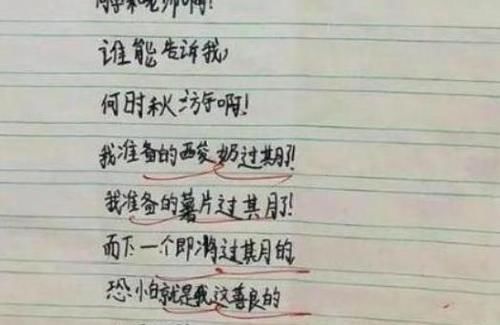 谁能告诉我，
何时秋游啊！
我准备的酸奶过期了！
我准备的薯片过期了！
而下一个即将过期的
恐怕就是我这善良的